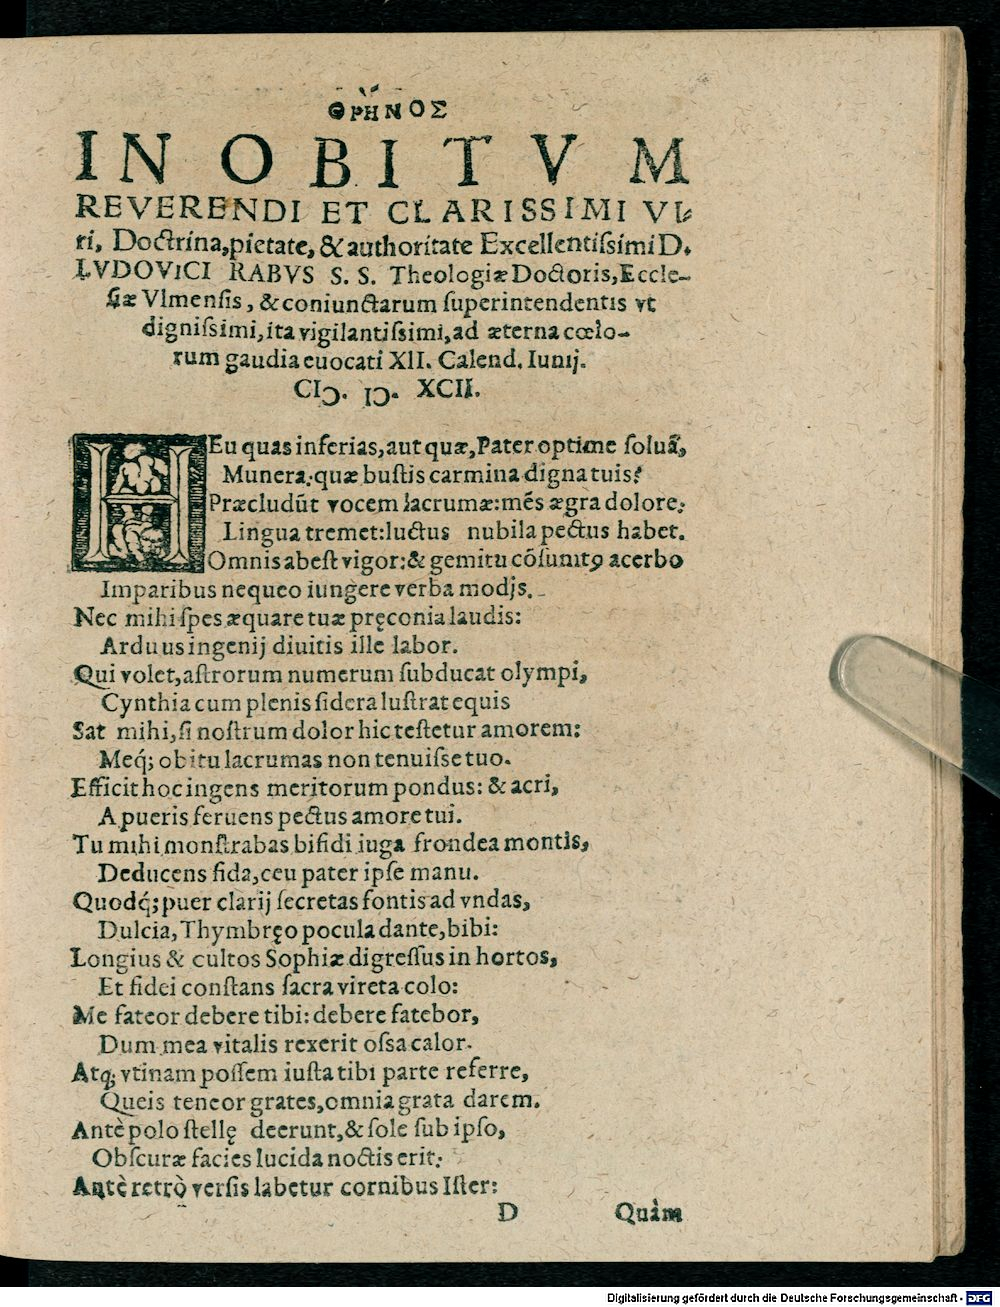 ΘΡΗΝΟΣ
IN OBITVM
REVERENDI ET CLARISSIMI VI-
ri, Doctrina, pietate, & authoritate Excellentiſsimi D.
LVDOVICI RABVS S. S. Theologiæ Doctoris, Eccle-
ſiæ Vlmenſis, & coniunctarum ſuperintendentis vt
digniſsimi, ita vigilantiſsimi, ad æterna cœlo-
rum gaudia euocati XII. Calend. Iunij.
CIↃ. IↃ. XCII.
HEu quas inferias, aut quæ, Pater optime ſoluã,
Munera: quæ buſtis carmina digna tuis?
Præcludũt vocem lacrumæ: mẽs ægra dolore:
Lingua tremet: luctus nubila pectus habet.
Omnis abeſt vigor: & gemitu cõſumitꝰ acerbo
Imparibus nequeo iungere verba modjs.
Nec mihi ſpes æquare tuæ pręconia laudis:
Arduus ingenij diuitis ille labor.
Qui volet, aſtrorum numerum ſubducat olympi,
Cynthia cum plenis ſidera luſtrat equis
Sat mihi, ſi noſtrum dolor hic teſtetur amorem:
Meq́; obitu lacrumas non tenuiſse tuo.
Efficit hoc ingens meritorum pondus: & acri,
A pueris feruens pectus amore tui.
Tu mihi monſtrabas bifidi iuga frondea montis,
Deducens fida, ceu pater ipſe manu.
Quodq́; puer clarij ſecretas fontis ad vndas,
Dulcia, Thymbręo pocula dante, bibi:
Longius & cultos Sophiæ digreſſus in hortos,
Et fidei conſtans ſacra vireta colo:
Me fateor debere tibi: debere fatebor,
Dum mea vitalis rexerit oſſa calor.
Atq; vtinam poſſem iuſta tibi parte referre,
Queis teneor grates, omnia grata darem.
Antè polo ſtellę deerunt, & ſole ſub ipſo,
Obſcuræ facies lucida noctis erit:
Antè retrò verſis labetur cornibus Iſter:
D Quàm
Digitalisierung gefördert durch die Deutsche Forschungsgemeinschaft - DFG